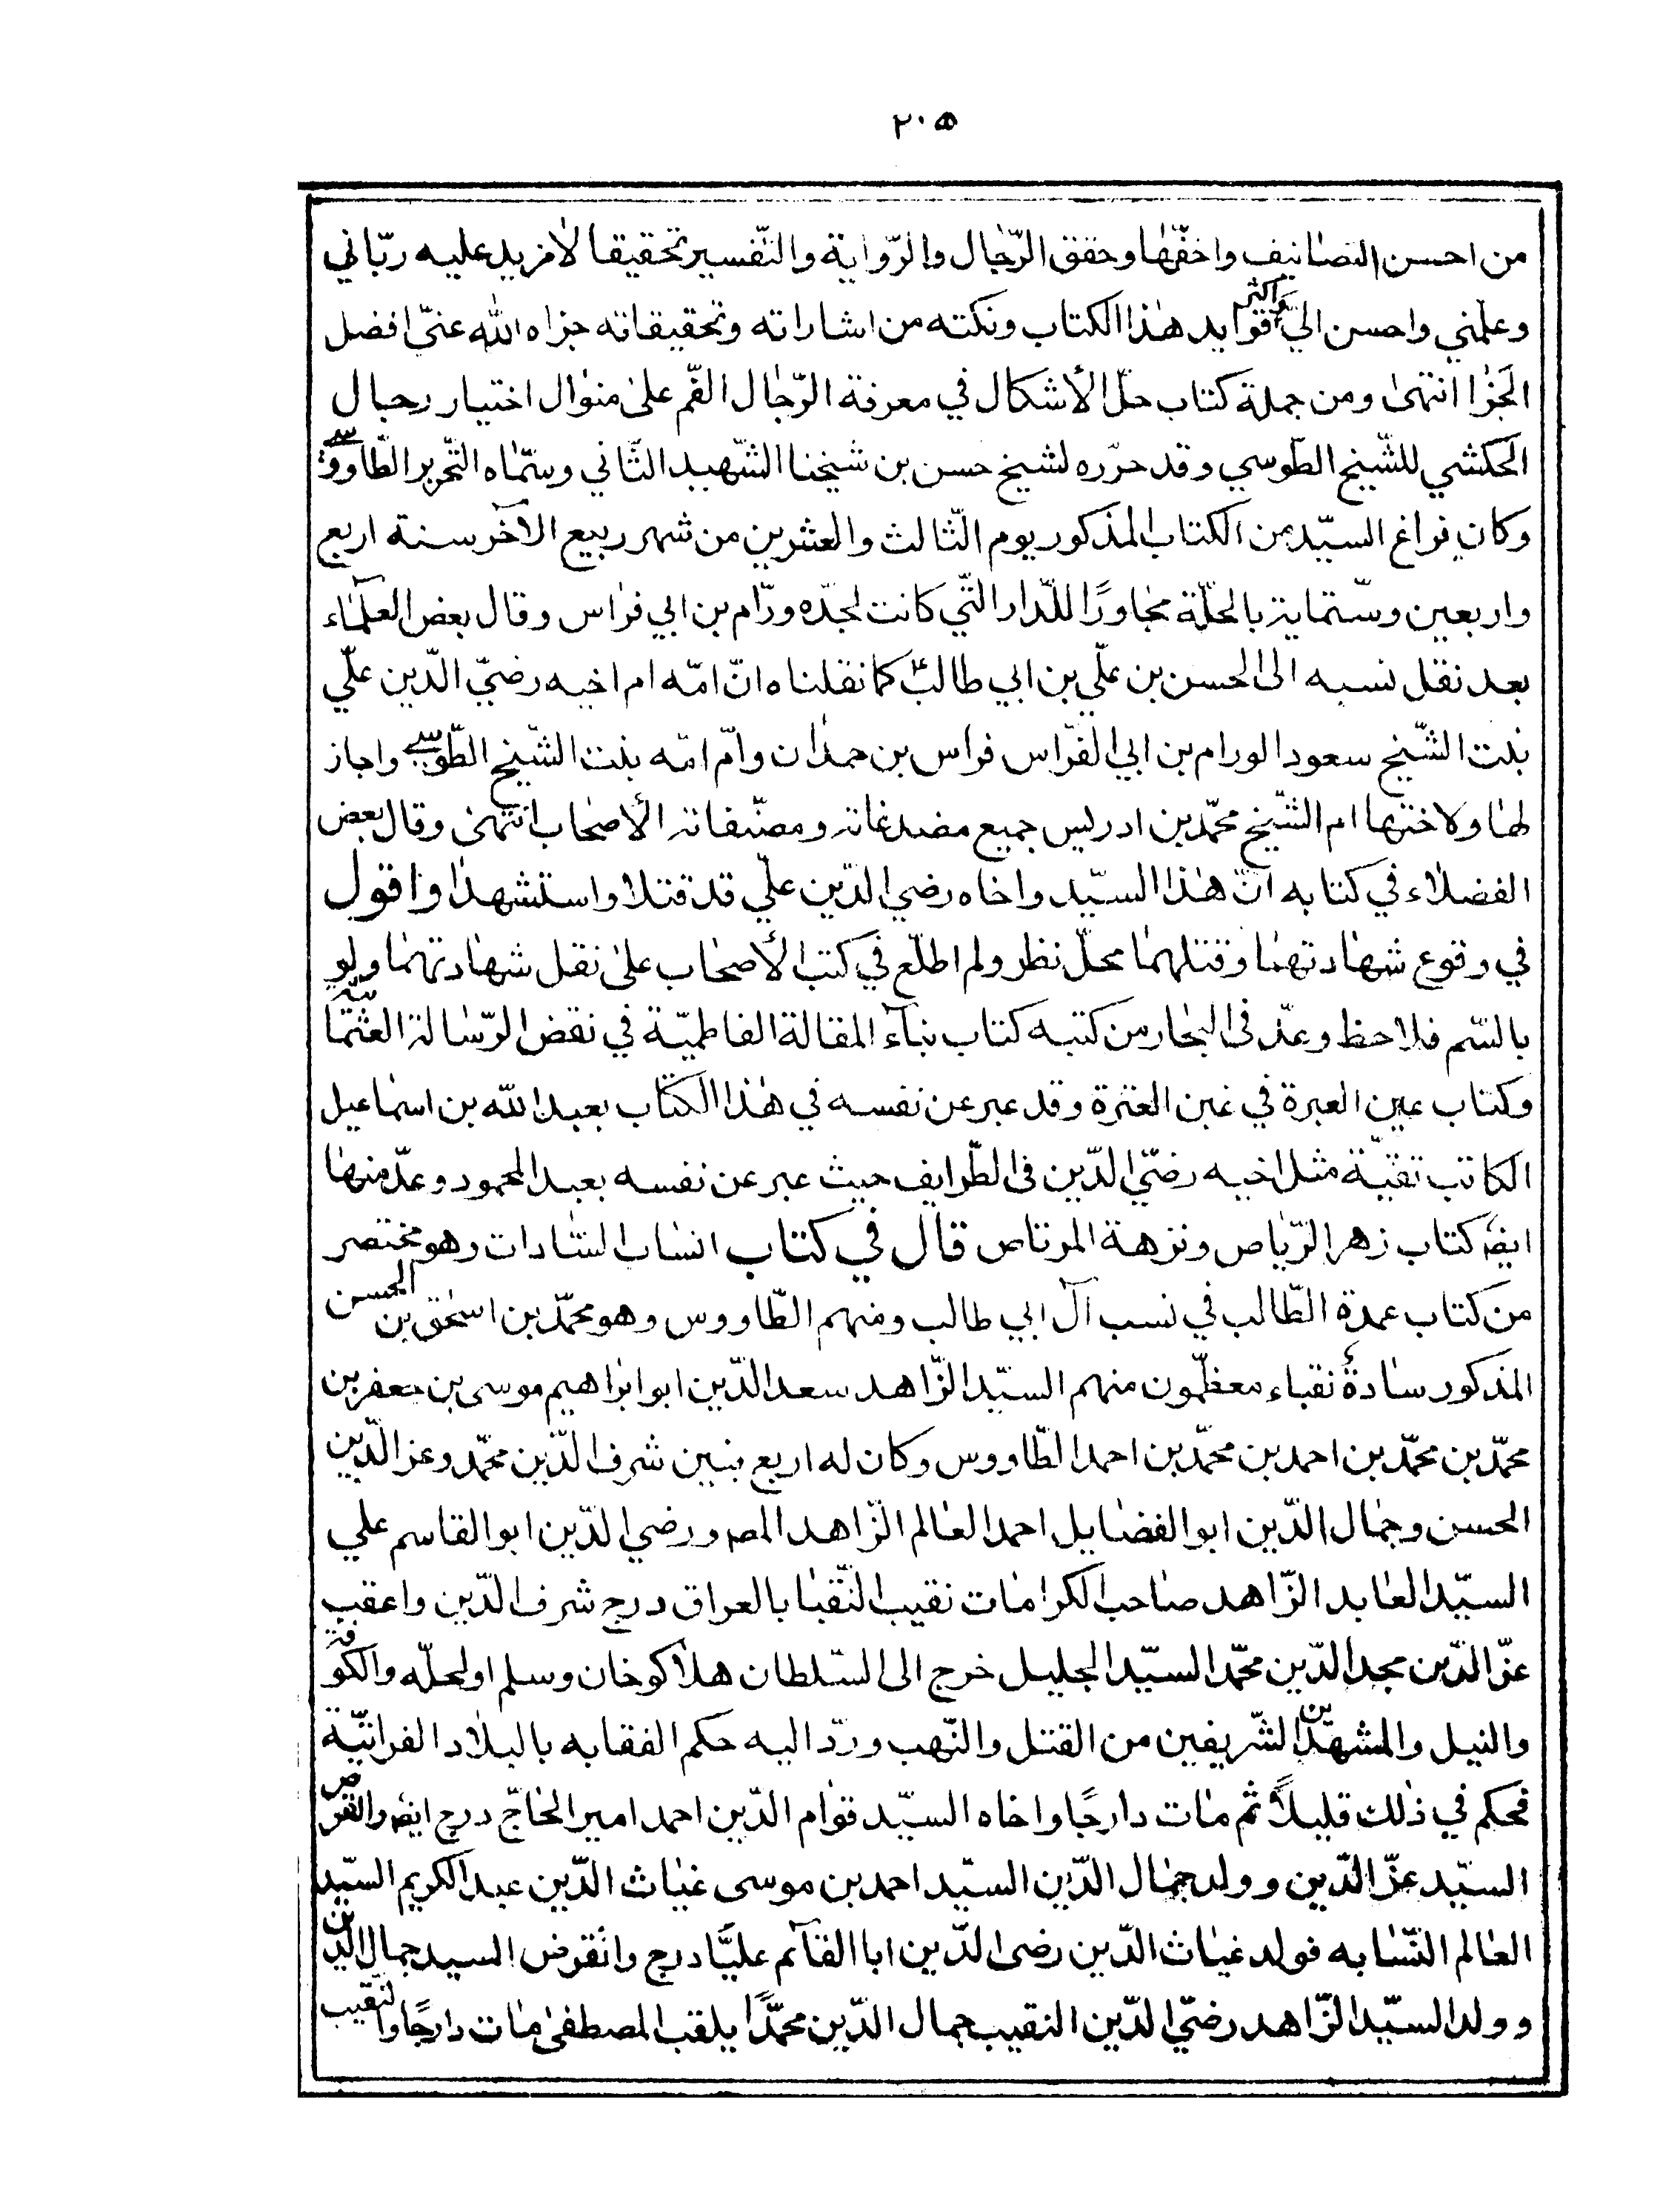 ٢٠٥
من احسن التصانيف واحقّها وحقق الرّجال والرّواية والتّفسير تحقيقا لامزيد عليه ربّاني
وعلمني واحسن اليّ واكثر فوايد هذا الكتاب ونكته من اشاراته وتحقيقاته جزاه الله عنّي افضل
الجزا انتهى ومن جملة كتاب حلّ الأشكال في معرفة الرّجال القّم على منوال اختيار رجال
الحكشي للشّيخ الطّوسي وقد حرّره لشيخ حسن بن شيخنا الشّهيد الثّاني وسمّاه التّحرير الطّاووسي
وكان فراغ السيّد من الكتاب المذكور يوم الثّالث والعشرين من شهر ربيع الآخر سنة اربع
واربعين وستّماية بالحلّة مجاورًا للدّار الّتي كانت لجدّه ورّام بن ابي فراس وقال بعض العلمآء
بعد نقل نسبه الى الحسن بن علّي بن ابي طالب كما نقلناه انّ امّه ام اخيه رضيّ الدّين علّي
بنت الشّيخ سعود الورام بن ابي الفرّاس فراس بن حمدان وامّ امّه بنت الشّيخ الطّوسي واجاز
لها ولاختها ام الشّيخ محمّد بن ادريس جميع مصنّفاته ومصنّفات الأصحاب انتهى وقال بعض
الفضلاء في كتابه انّ هذا السيّد واخاه رضي الدّين علّي قد قتلا واستشهدا واقول
في وقوع شهادتهما وقتلهما محلّ نظر ولم اطلّع في كتب الأصحاب على نقل شهادتهما ولو
بالسّم فلاحظ وعدّ في البحار من كتبه كتاب بنآء المقالة الفاطميّة في نقض الرّسالة العثمانيّة
وكتاب عين العبرة في غبن العترة وقد عبر عن نفسه في هذا الكتاب بعبد الله بن اسماعيل
الكاتب تقيّة مثل اخيه رضيّ الدّين في الطّرايف حيث عبر عن نفسه بعبد المحمود وعدّ منها
ايضا كتاب زهر الرّياض ونزهة المرتاض قال في كتاب انساب السّادات وهو مختصر
من كتاب عمدة الطّالب في نسب آل ابي طالب ومنهم الطّاووس وهو محمّد بن اسحق بن الحسن
المذكور سادةٌ نقباء معظّمون منهم السيّد الزّاهد سعد الدّين ابو ابراهيم موسى بن جعفر بن
محمّد بن محمّد بن احمد بن محمّد بن احمد الطّاووس وكان له اربع بنين شرف الدّين محمّد وعز الدّين
الحسن وجمال الدّين ابو الفضايل احمد العالم الزّاهد المص ورضي الدّين ابو القاسم علي
السيّد العابد الزّاهد صاحب الكرامات نقيب النّقبا بالعراق درج شرف الدّين واعقب
عزّ الدّين مجد الدّين محمّد السيّد الجليل خرج الى السّلطان هلاكو خان وسلم اولحلّه والكوفة
والنيل والمشهدين الشّريفين من القتل والنّهب وردّ اليه حكم الفقابه بالبلاد الفراتيّة
فحكم في ذلك قليلاً ثم مات دارجًا واخاه السيّد قوام الدّين احمد امير الحاجّ درج ايضا وانقرض
السيّد عزّ الدّين وولد جمال الدّين السيّد احمد بن موسى غياث الدّين عبد الكريم السيّد
العالم النّسّابه فولد غياث الدّين رضى الدّين ابا القآئم عليًّا درج وانقرض السيد جمال الدّين
وولد السيّد الزّاهد رضيّ الدّين النقيب جمال الدّين محمّدًا يلقب المصطفى مات دارجًا والنّقيب